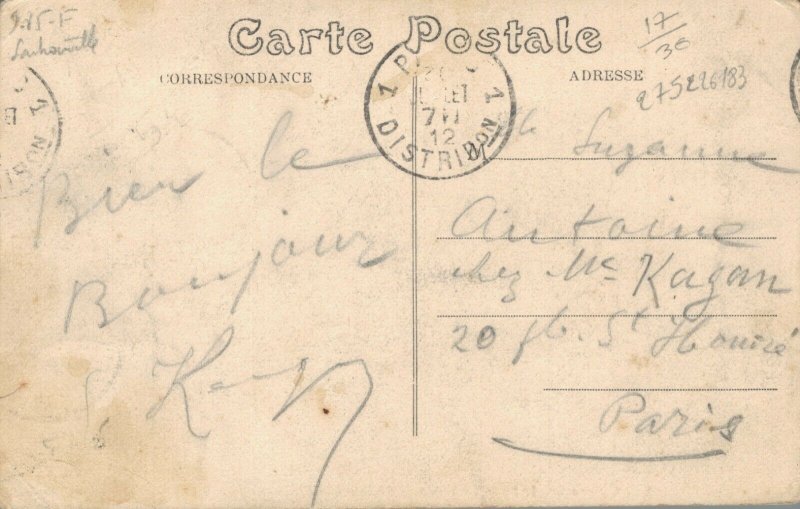 Carte Postale
CORRESPONDANCE
ADRESSE
17/30
275226183
1 DISTRIBON 1
7H
12
Bien le
Bonjour
Mlle Suzanne
Antoine
chez Mc Kagan
20 fb. St Honoré
Paris